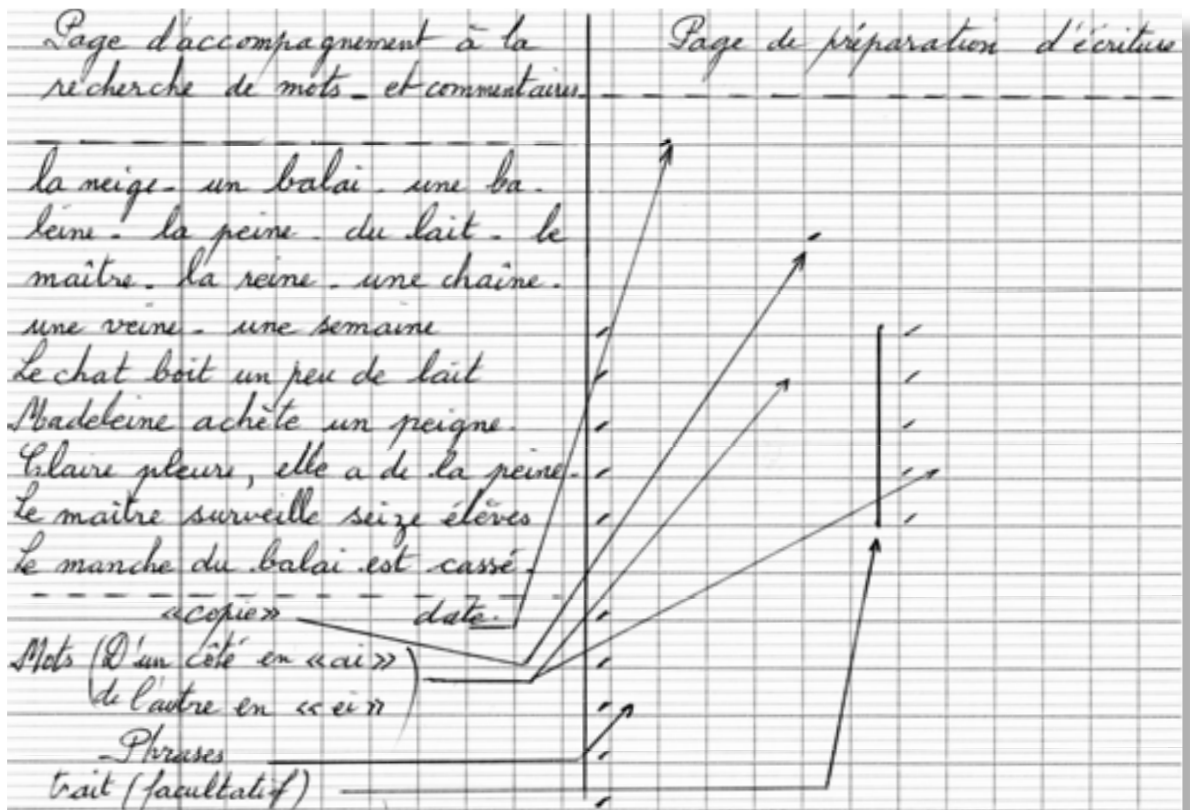 Page d'accompagnement à la
recherche de mots - et commentaires.
Page de préparation d'écriture
la neige - un balai - une ba-
leine - la peine - du lait - le
maître - la reine - une chaîne -
une veine - une semaine
Le chat boit un peu de lait
Madeleine achète un peigne.
Claire pleure, elle a de la peine.
Le maître surveille seize élèves
Le manche du balai est cassé.
«copie» date.
Mots (D'un côté en «ai»
de l'autre en «ei»)
- Phrases
trait (facultatif)